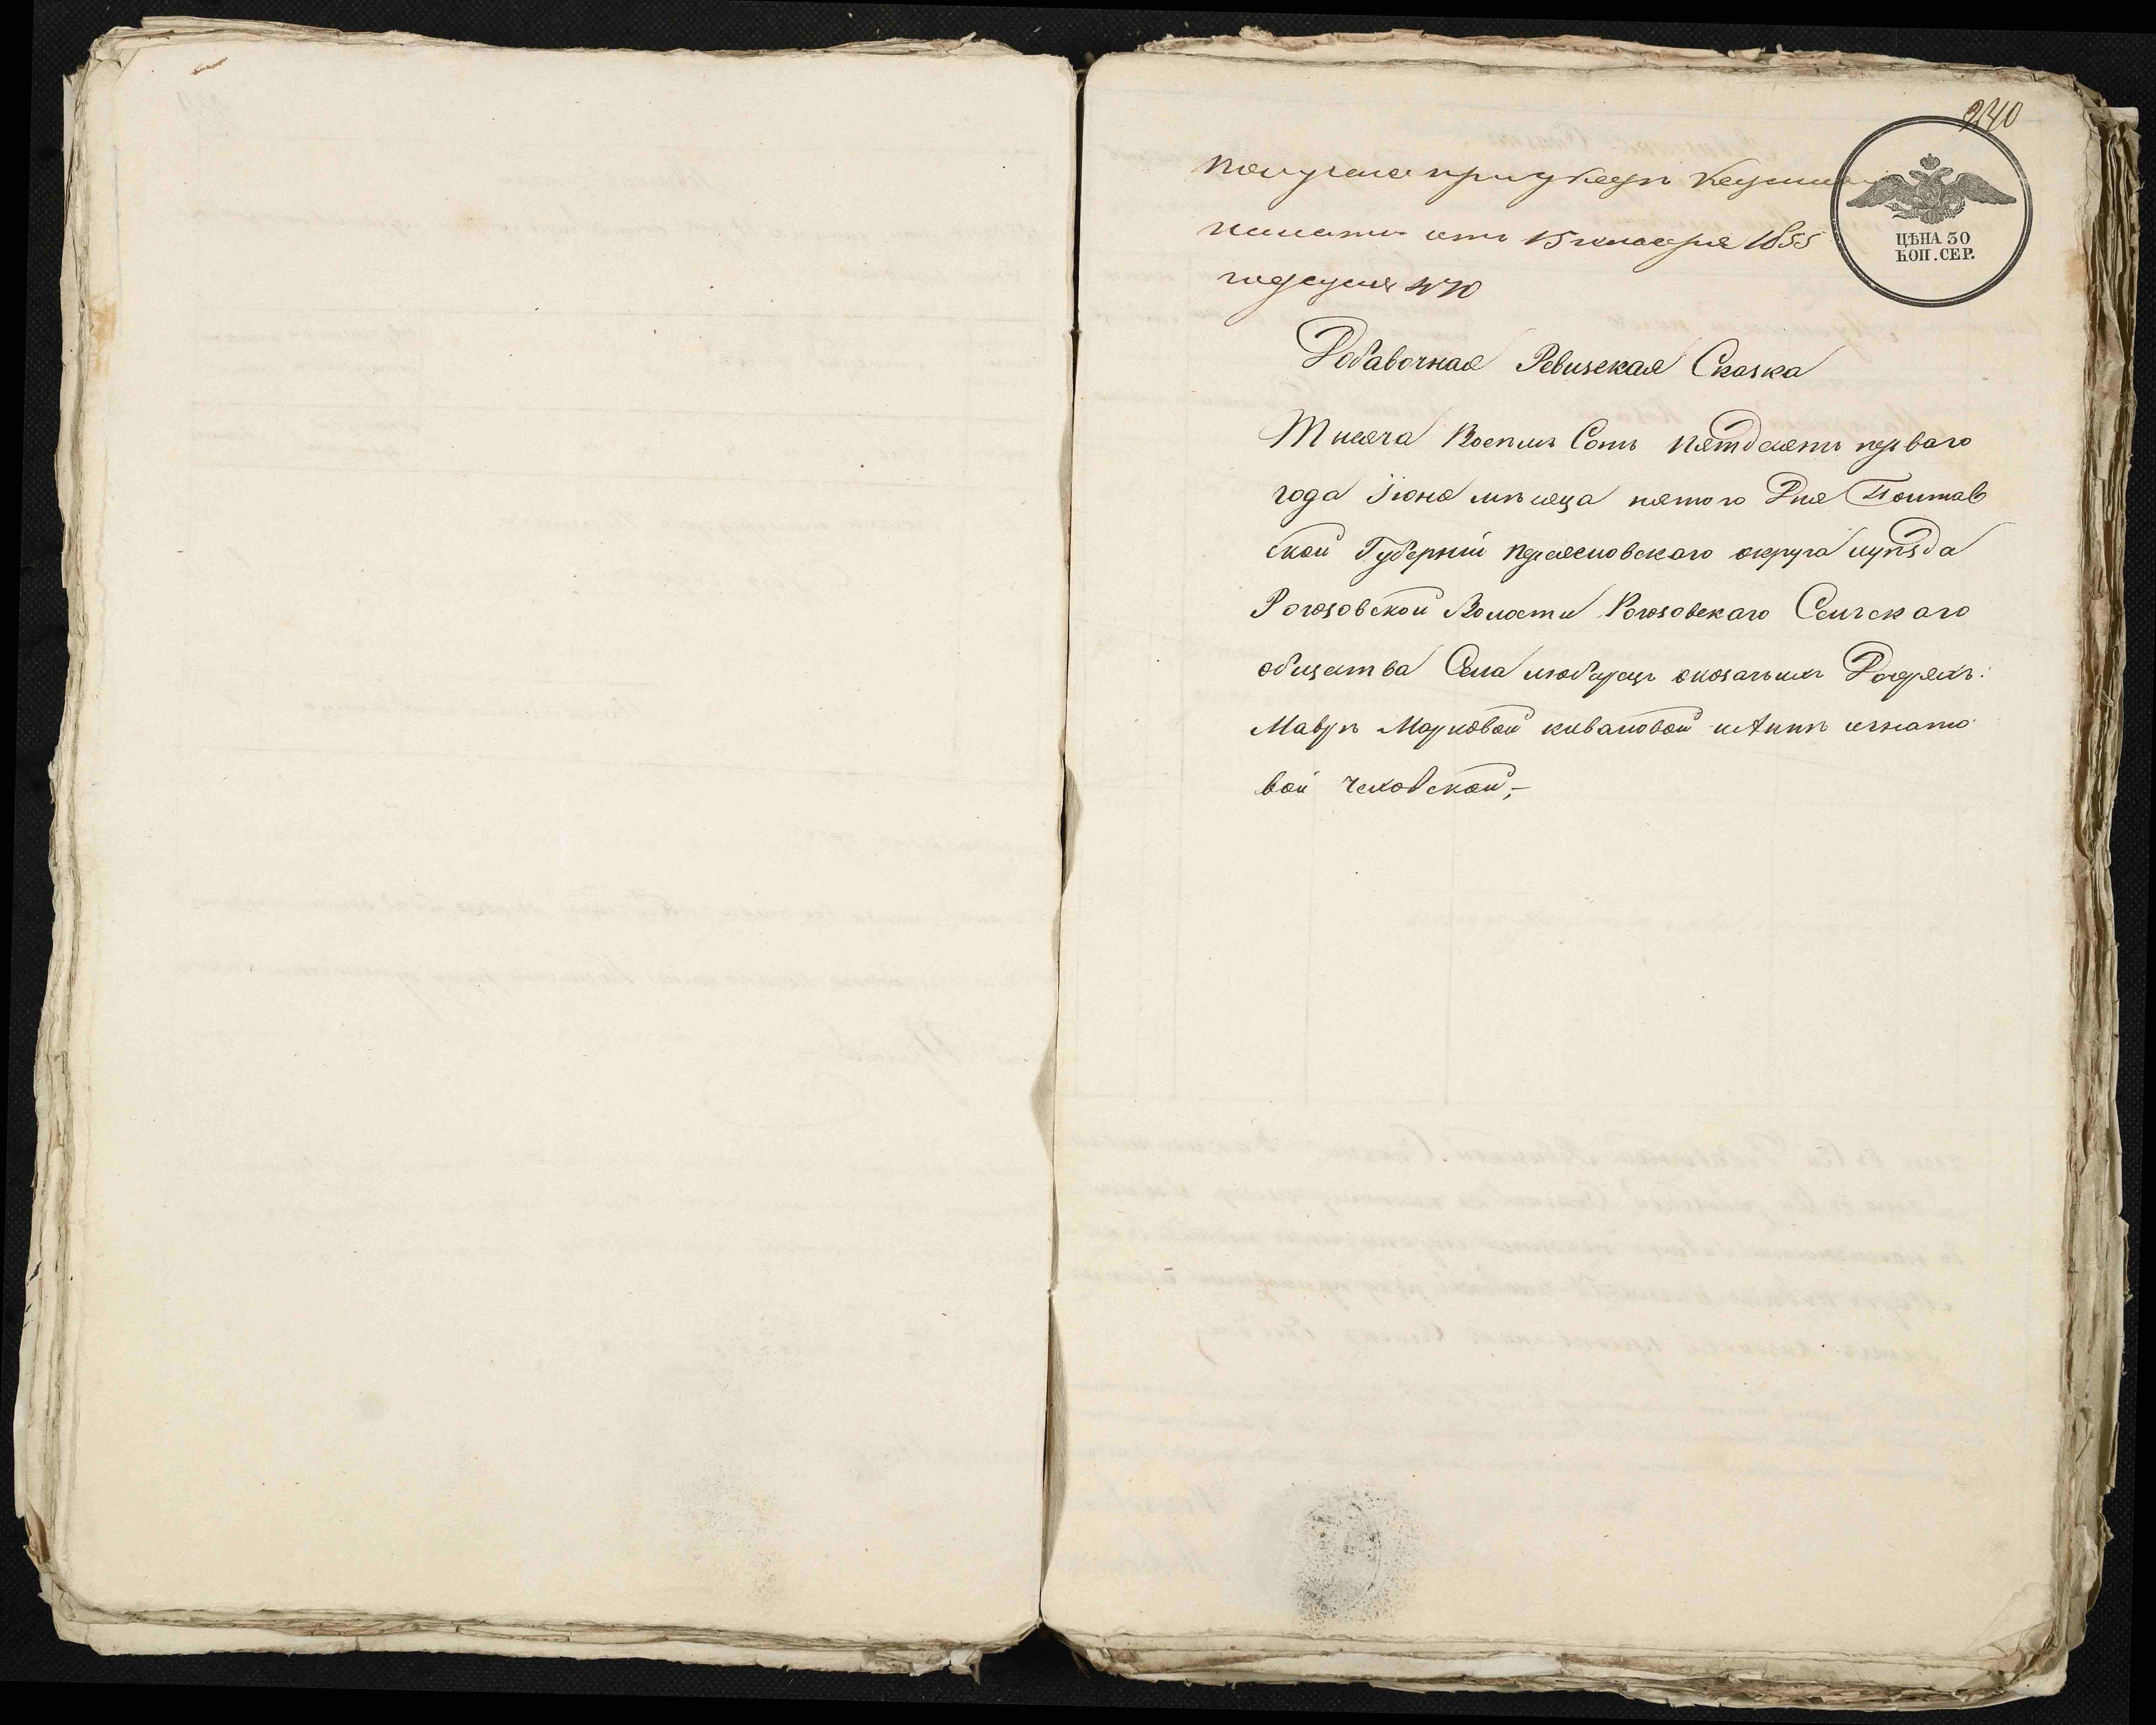 240
Получена при указѣ Казенной
палаты отъ 15 января 1855
года № 470
ЦѢНА 30
КОП. СЕР.
Добавочная Ревизская Сказка
Тисяча Восемь Сотъ пятдесятъ перваго
года Іюня мѣсяца пятого Дня Полтав
ской Губерніи переясловского округа иуѣзда
Рогозовской Волости Рогозовскаго Сельскаго
общества Села любарецъ оказачыхъ Дочеряхъ:
Маврѣ Марковой ковалювой иАннѣ игнато
вой чеховской,-